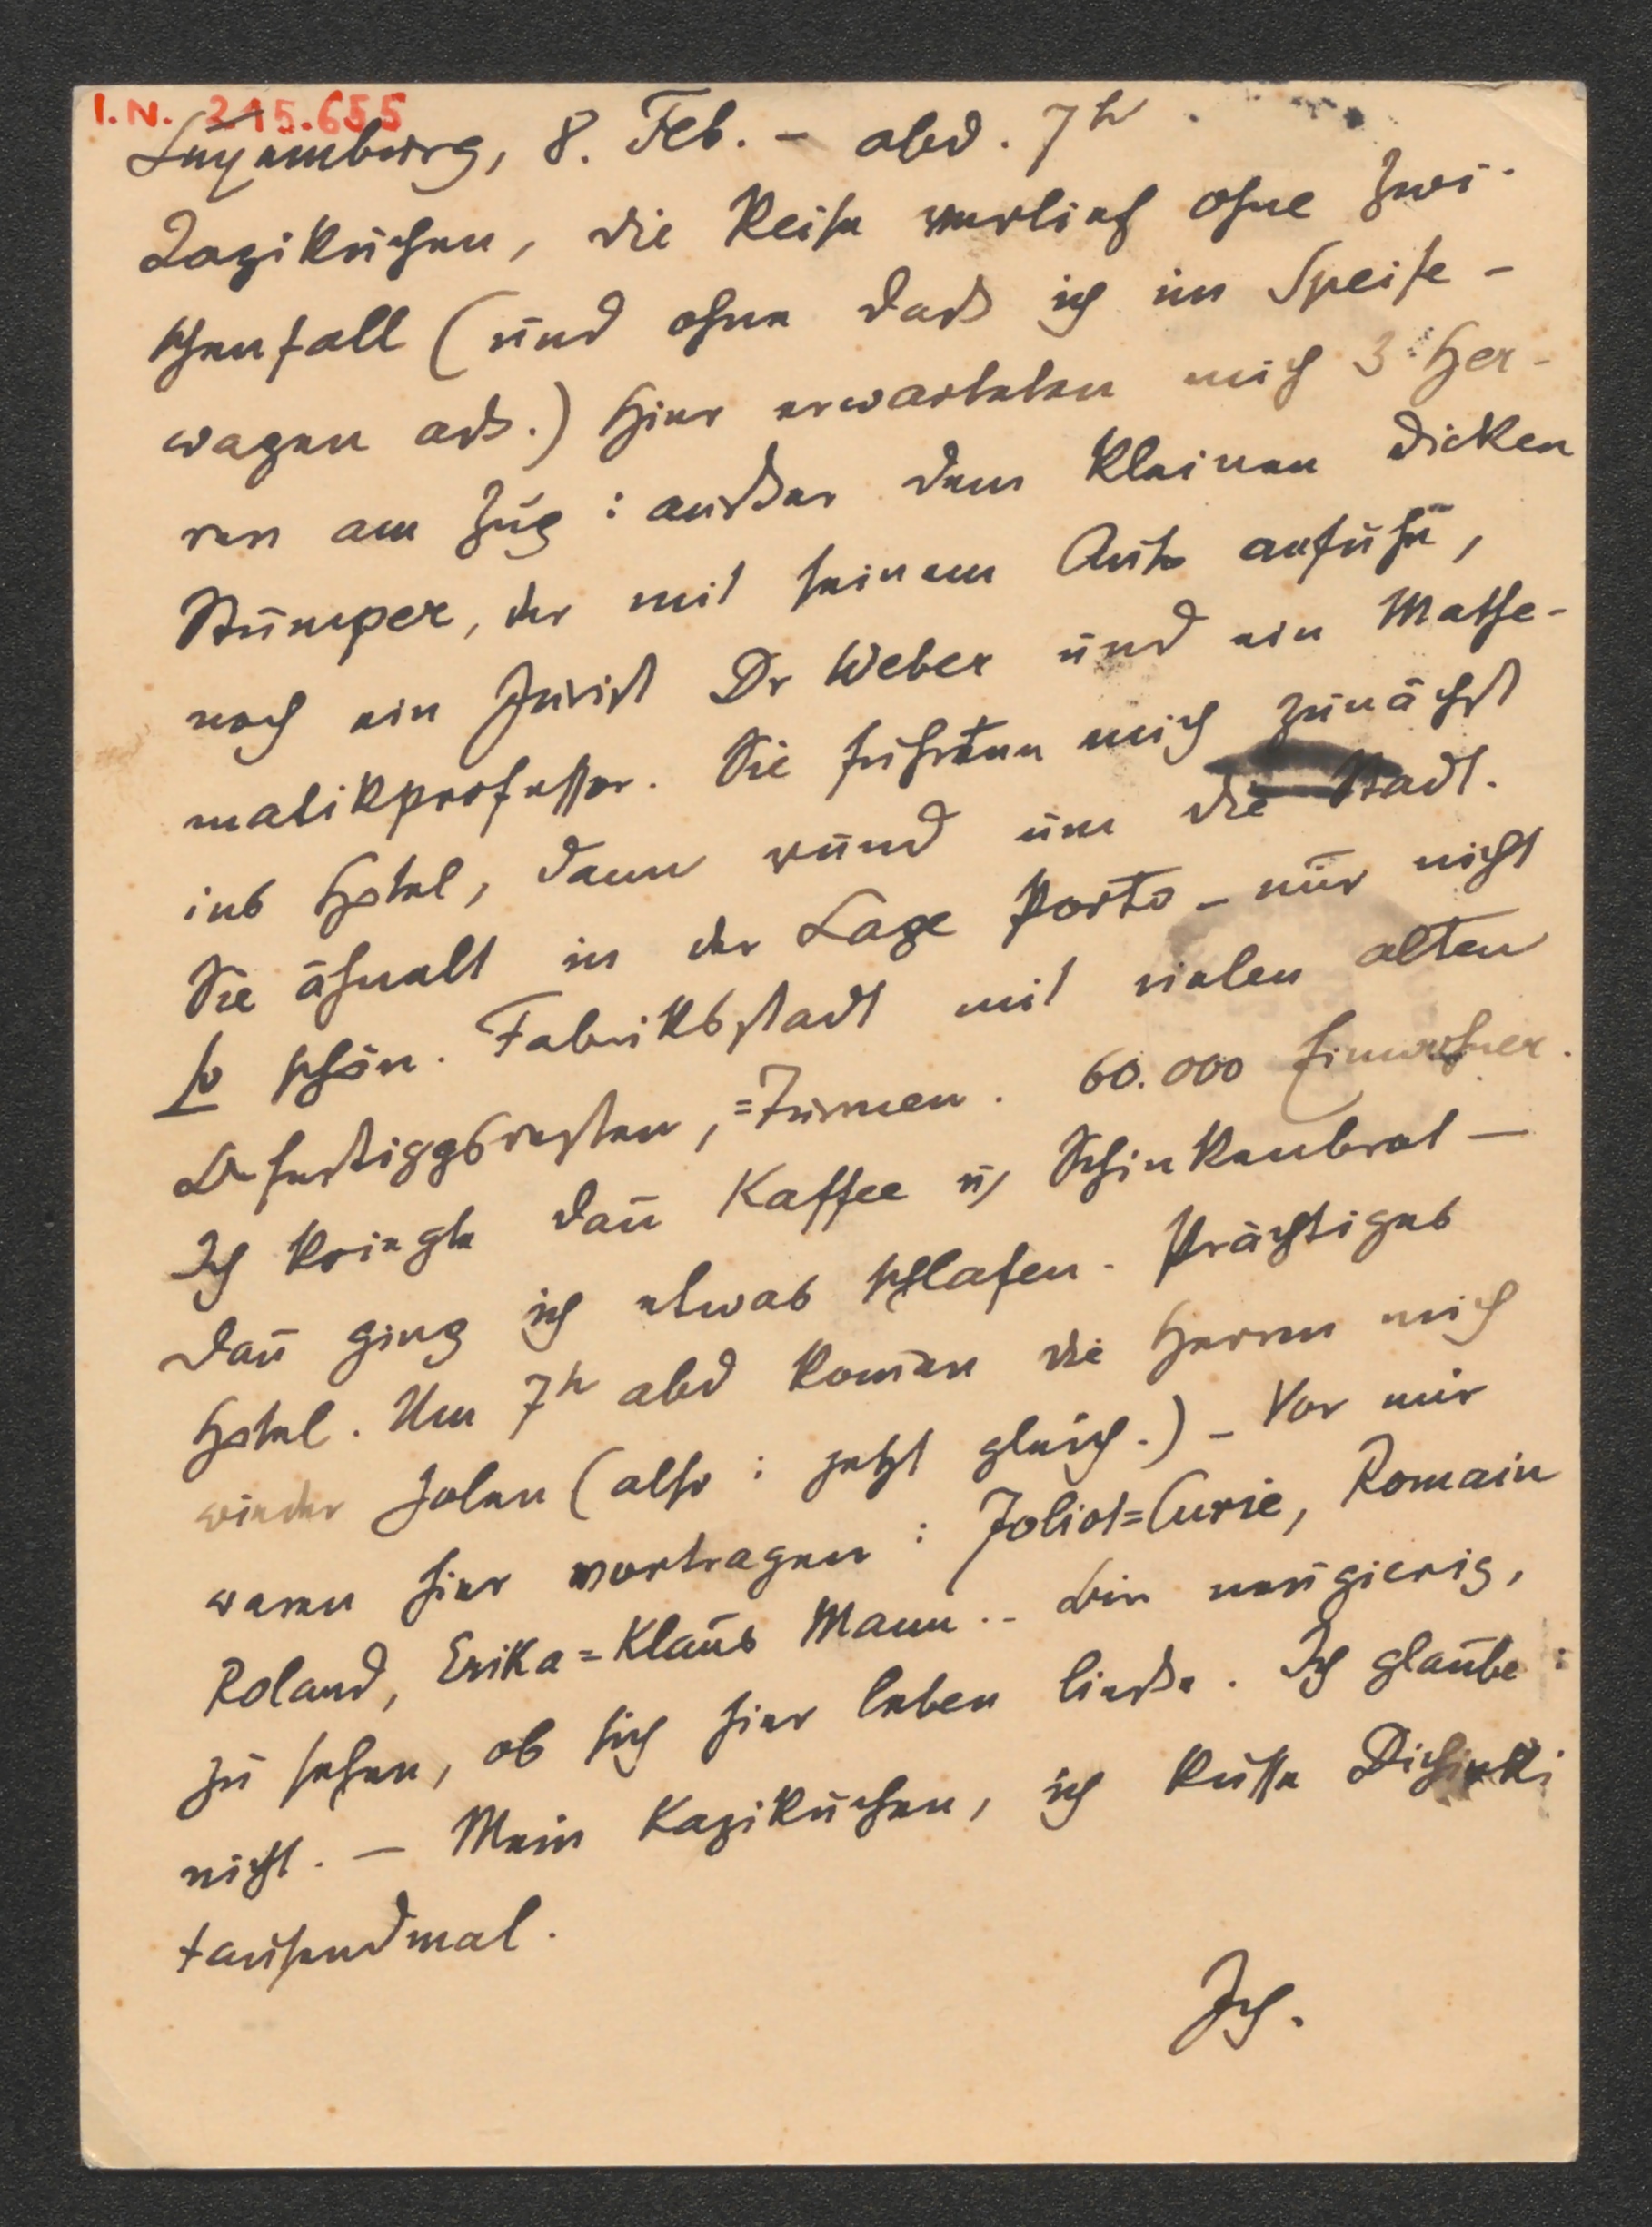 I.N. 215.655
Luxemburg, 8. Feb. – abd. 7h
Kazikuchen, die Reise verlief ohne Zwi-
schenfall (und ohne daß ich im Speise-
wagen aß.) Hier erwarteten mich 3 Her-
ren am Zug: außer dem kleinen dicken
Stumper, der mit seinem Auto anfuhr,
noch ein Jurist Dr Weber und ein Mathe-
matikprofessor. Sie führten mich zunächst
ins Hotel, dann rund um die Stadt.
Sie ähnelt in der Lage Porto – nur nicht
so schön. Fabriksstadt mit vielen alten
Befestiggsresten, =Türmen. 60.000 Einwohner.
Ich kriegte dann Kaffee u. Schinkenbrot –
dann ging ich etwas schlafen. Prächtiges
Hotel. Um 7h abd kom̅en die Herren mich
wieder holen (also: jetzt gleich.) – Vor mir
waren hier vortragen: Joliot=Curie, Romain
Roland, Erika=Klaus Mann.. Bin neugierig,
zu sehen, ob sich hier leben ließe. Ich glaube:
nicht. – Mein Kazikuchen, ich küsse
tausendmal.
Ich.